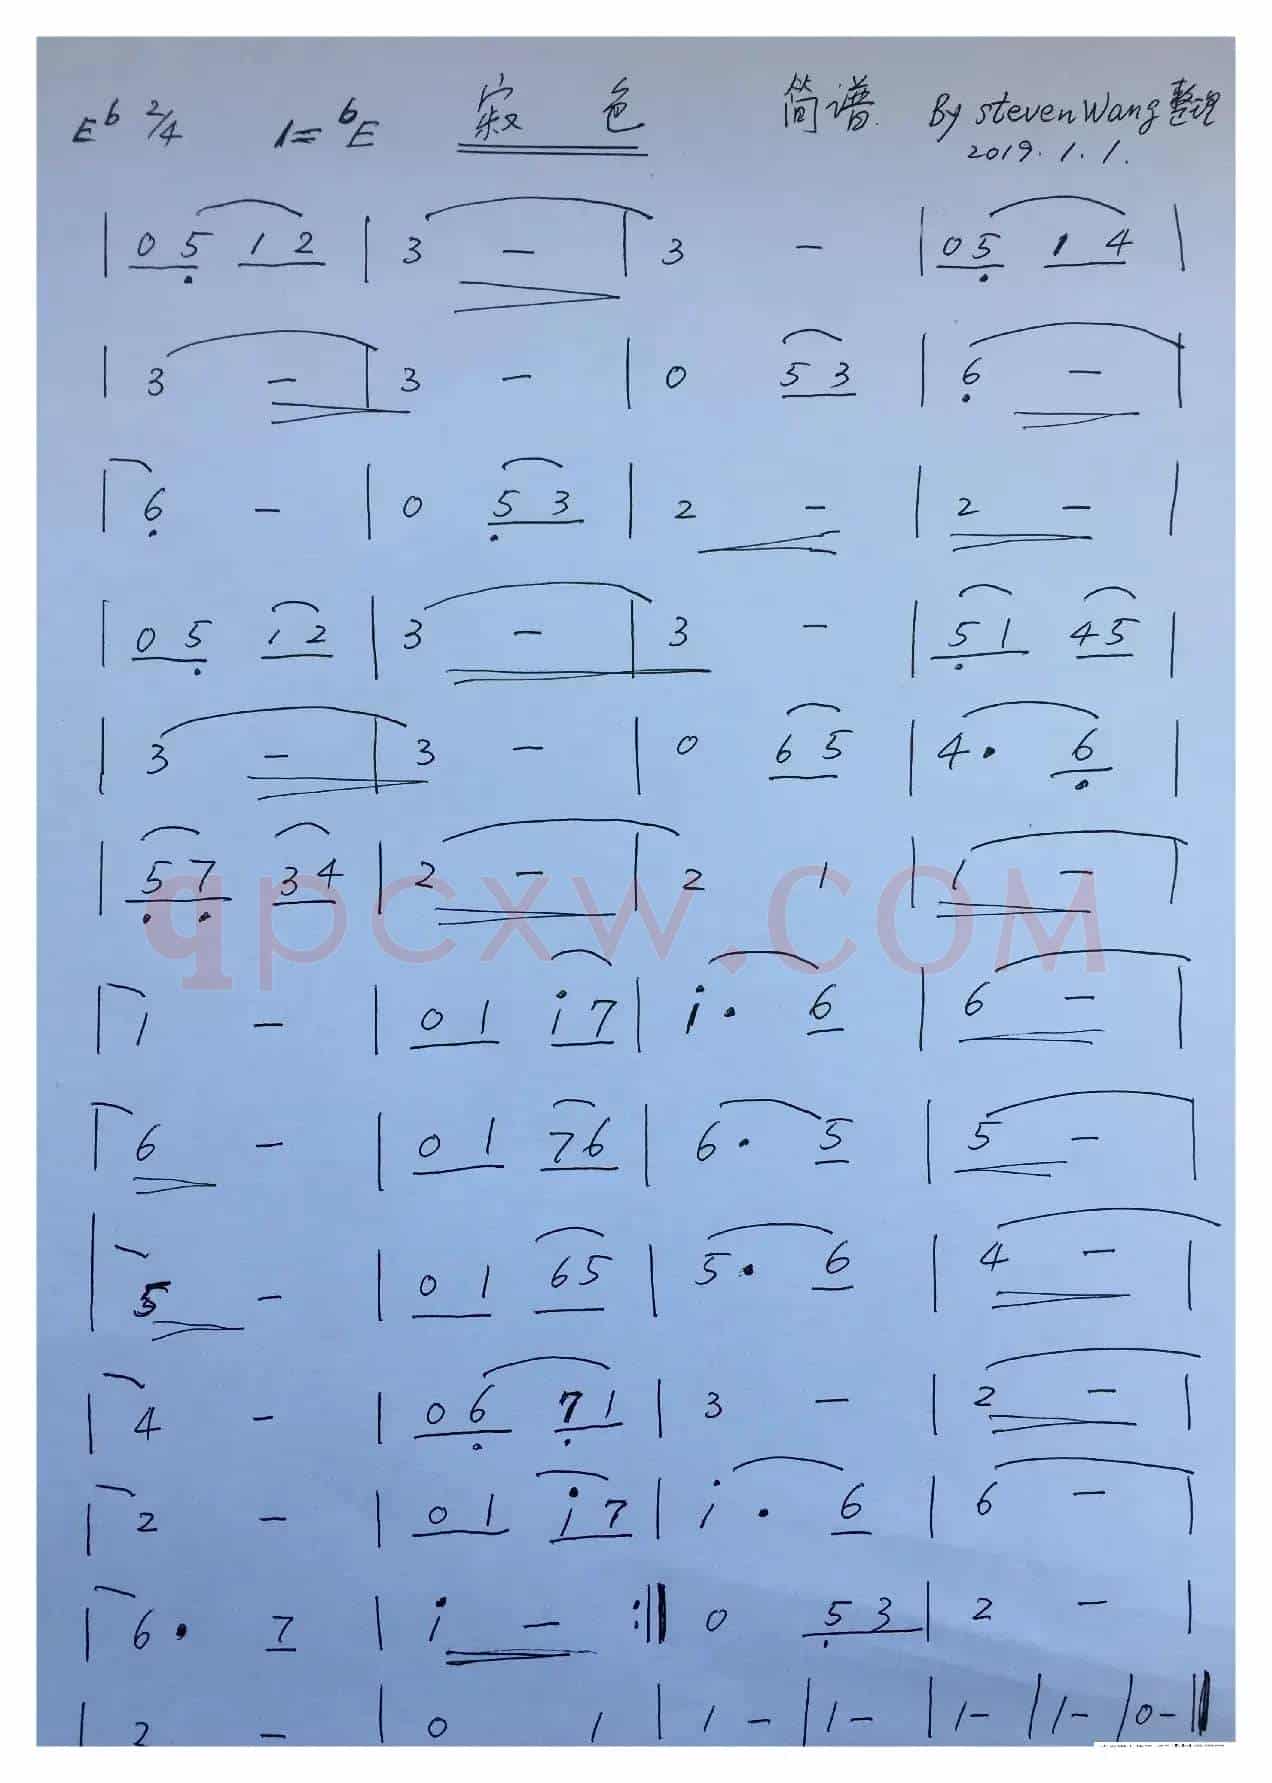 E♭ 2/4 1=♭E 寂色 简谱 By steven Wang 整理
2019.1.1.
| 0 5̣ 1 2 | 3 - | 3 - | 0 5̣ 1 4 |
| 3 - | 3 - | 0 5 3 | 6̣ - |
| 6̣ - | 0 5̣ 3 | 2 - | 2 - |
| 0 5̣ 1 2 | 3 - | 3 - | 5̣ 1 4 5 |
| 3 - | 3 - | 0 6 5 | 4· 6̣ |
| 5̣ 7̣ 3 4 | 2 - | 2 1 | 1 - |
qpcxw.COM
| 1 - | 0 1 i 7 | i· 6 | 6 - |
| 6 - | 0 1 7 6 | 6· 5 | 5 - |
| 5 - | 0 1 6 5 | 5· 6 | 4 - |
| 4 - | 0 6̣ 7̣ 1 | 3 - | 2 - |
| 2 - | 0 1 i 7 | i· 6 | 6 - |
| 6· 7 | i - :‖ 0 5̣ 3 | 2 - |
| 2 - | 0 1 | 1 - | 1 - | 1 - | 1 - | 0 - ‖